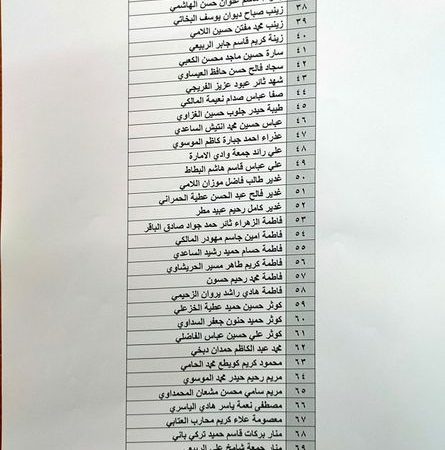 علوان حسن الهاشمي
٣٨ زينب صباح ديوان يوسف البخاتي
٣٩ زينب محمد مفتن حسين اللامي
٤٠ زينة كريم قاسم جابر الربيعي
٤١ سارة حسين ماجد محسن الكعبي
٤٢ سجاد فالح حسن حافظ العيساوي
٤٣ شهد ثائر عبود عزيز الفريجي
٤٤ صفا عباس صدام نعيمة المالكي
٤٥ طيبة حيدر جلوب حسين الغزاوي
٤٦ عباس حسين محمد انتيش الساعدي
٤٧ عذراء احمد جبارة كاظم الموسوي
٤٨ علي رائد جمعة وادي الامارة
٤٩ علي عباس قاسم هاشم البطاط
٥٠ غدير طالب فاضل موزان اللامي
٥١ غدير فالح عبد الحسين عطية الحمراني
٥٢ غدير كامل رحيم عبيد مطر
٥٣ فاطمة الزهراء ثائر حمد جواد صادق الباقر
٥٤ فاطمة امين جاسم مهودر المالكي
٥٥ فاطمة حسام حميد رشيد الساعدي
٥٦ فاطمة كريم طاهر مسير الحريشاوي
٥٧ فاطمة محمد رحيم حسون
٥٨ فاطمة هادي راشد بروان الزحيمي
٥٩ كوثر حسين حميد عطية الخزعلي
٦٠ كوثر حميد حنون جعفر السداوي
٦١ كوثر علي حسين عباس الفاضلي
٦٢ محمد عبد الكاظم حمدان دبخي
٦٣ محمود كريم كويطع محمد الحامي
٦٤ مريم رحيم حيدر محمد الموسوي
٦٥ مريم سامي محسن مشعان المحمداوي
٦٦ مصطفى نعمة ياسر هادي الياسري
٦٧ معصومة علاء كريم محارب العتابي
٦٨ منار بركات قاسم حميد تركي باني
٦٩ منار جمعة شامخ علي الربيعي